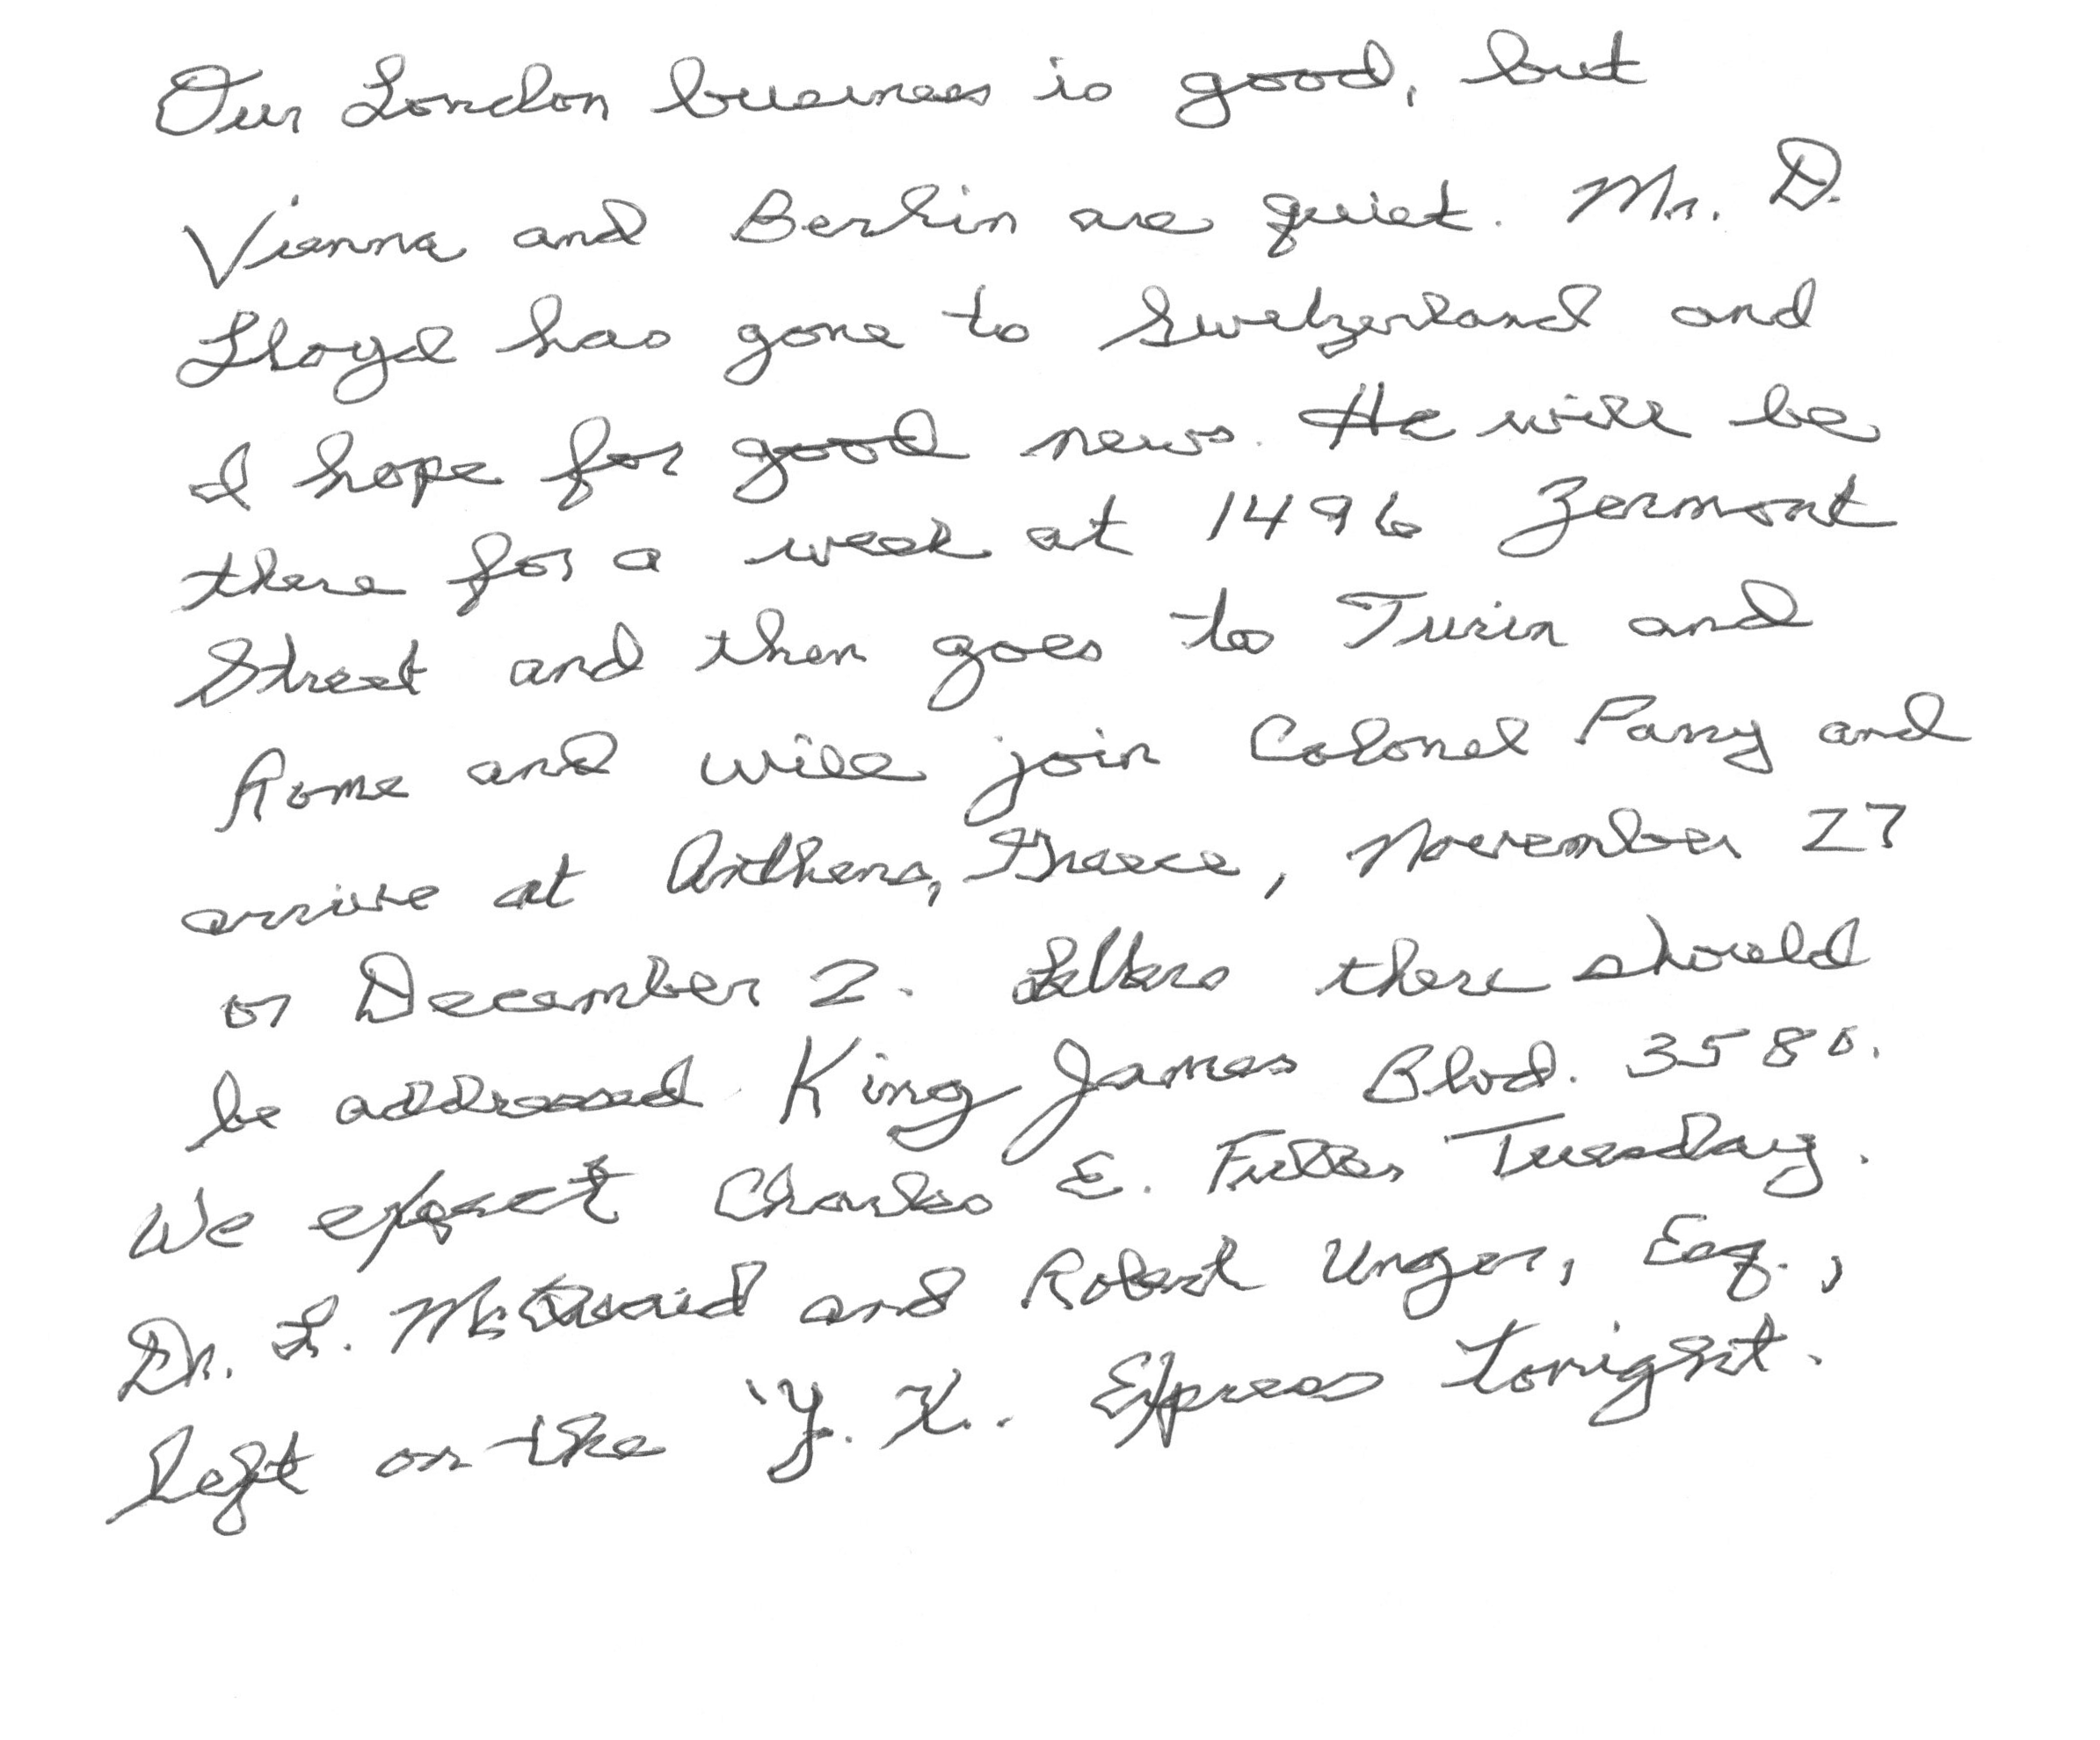 Our London business is good, but
Vienna and Berlin are quiet. Mr. D.
Lloyd has gone to Switzerland and
I hope for good news. He will be
there for a week at 1496 Zermont
Street and then goes to Turin and
Rome and will join Colonel Parry and
arrive at Anthens, Greece, November 27
or December 2. Letters there should
be addressed King James Blvd. 3580.
We expect Charles E. Fuller Tuesday.
Dr. L. McQuaid and Robert Unger, Esq.,
left on the Y. X. Express tonight.